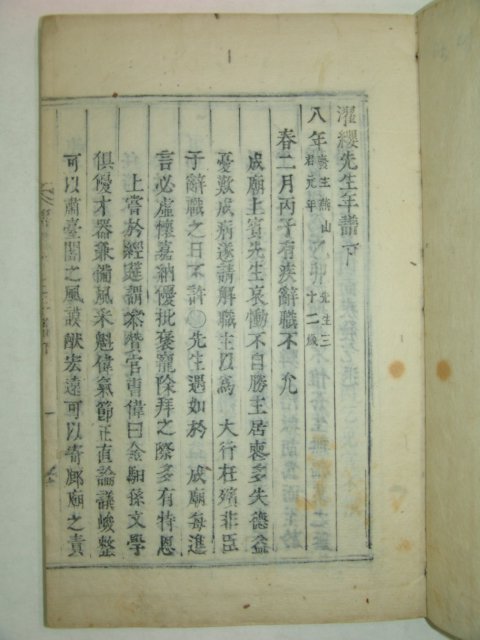 濯纓先生年譜下
八年 廢主燕山君元年 先生三十二歲
春二月丙子有疾辭職不 允
成廟上賓先生哀慟不自勝主居喪多失德益
憂歎成病遂請解職主以爲 大行在殯非臣
子辭職之日不許○先生遇知於 成廟每進
言必虛懷嘉納優批褒寵除拜之際多有特恩
上嘗於經筵謂參贊官曺偉曰金馹孫文學
俱優才器兼備風采魁偉氣節正直論議峻整
可以肅臺閣之風謨猷宏遠可以寄廊廟之責